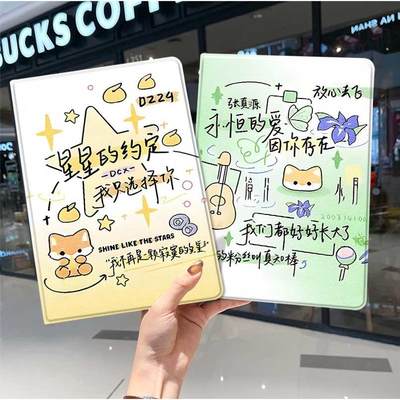 BUCKS COFF
0224
星星的约定
-DCX-
我只选择你
SHINE LIKE THE STARS
"我不再是一颗寂寞的星星"
张真源
放心去飞
永恒的爱
因你存在
我们都好好长大了
的粉丝叫真知棒